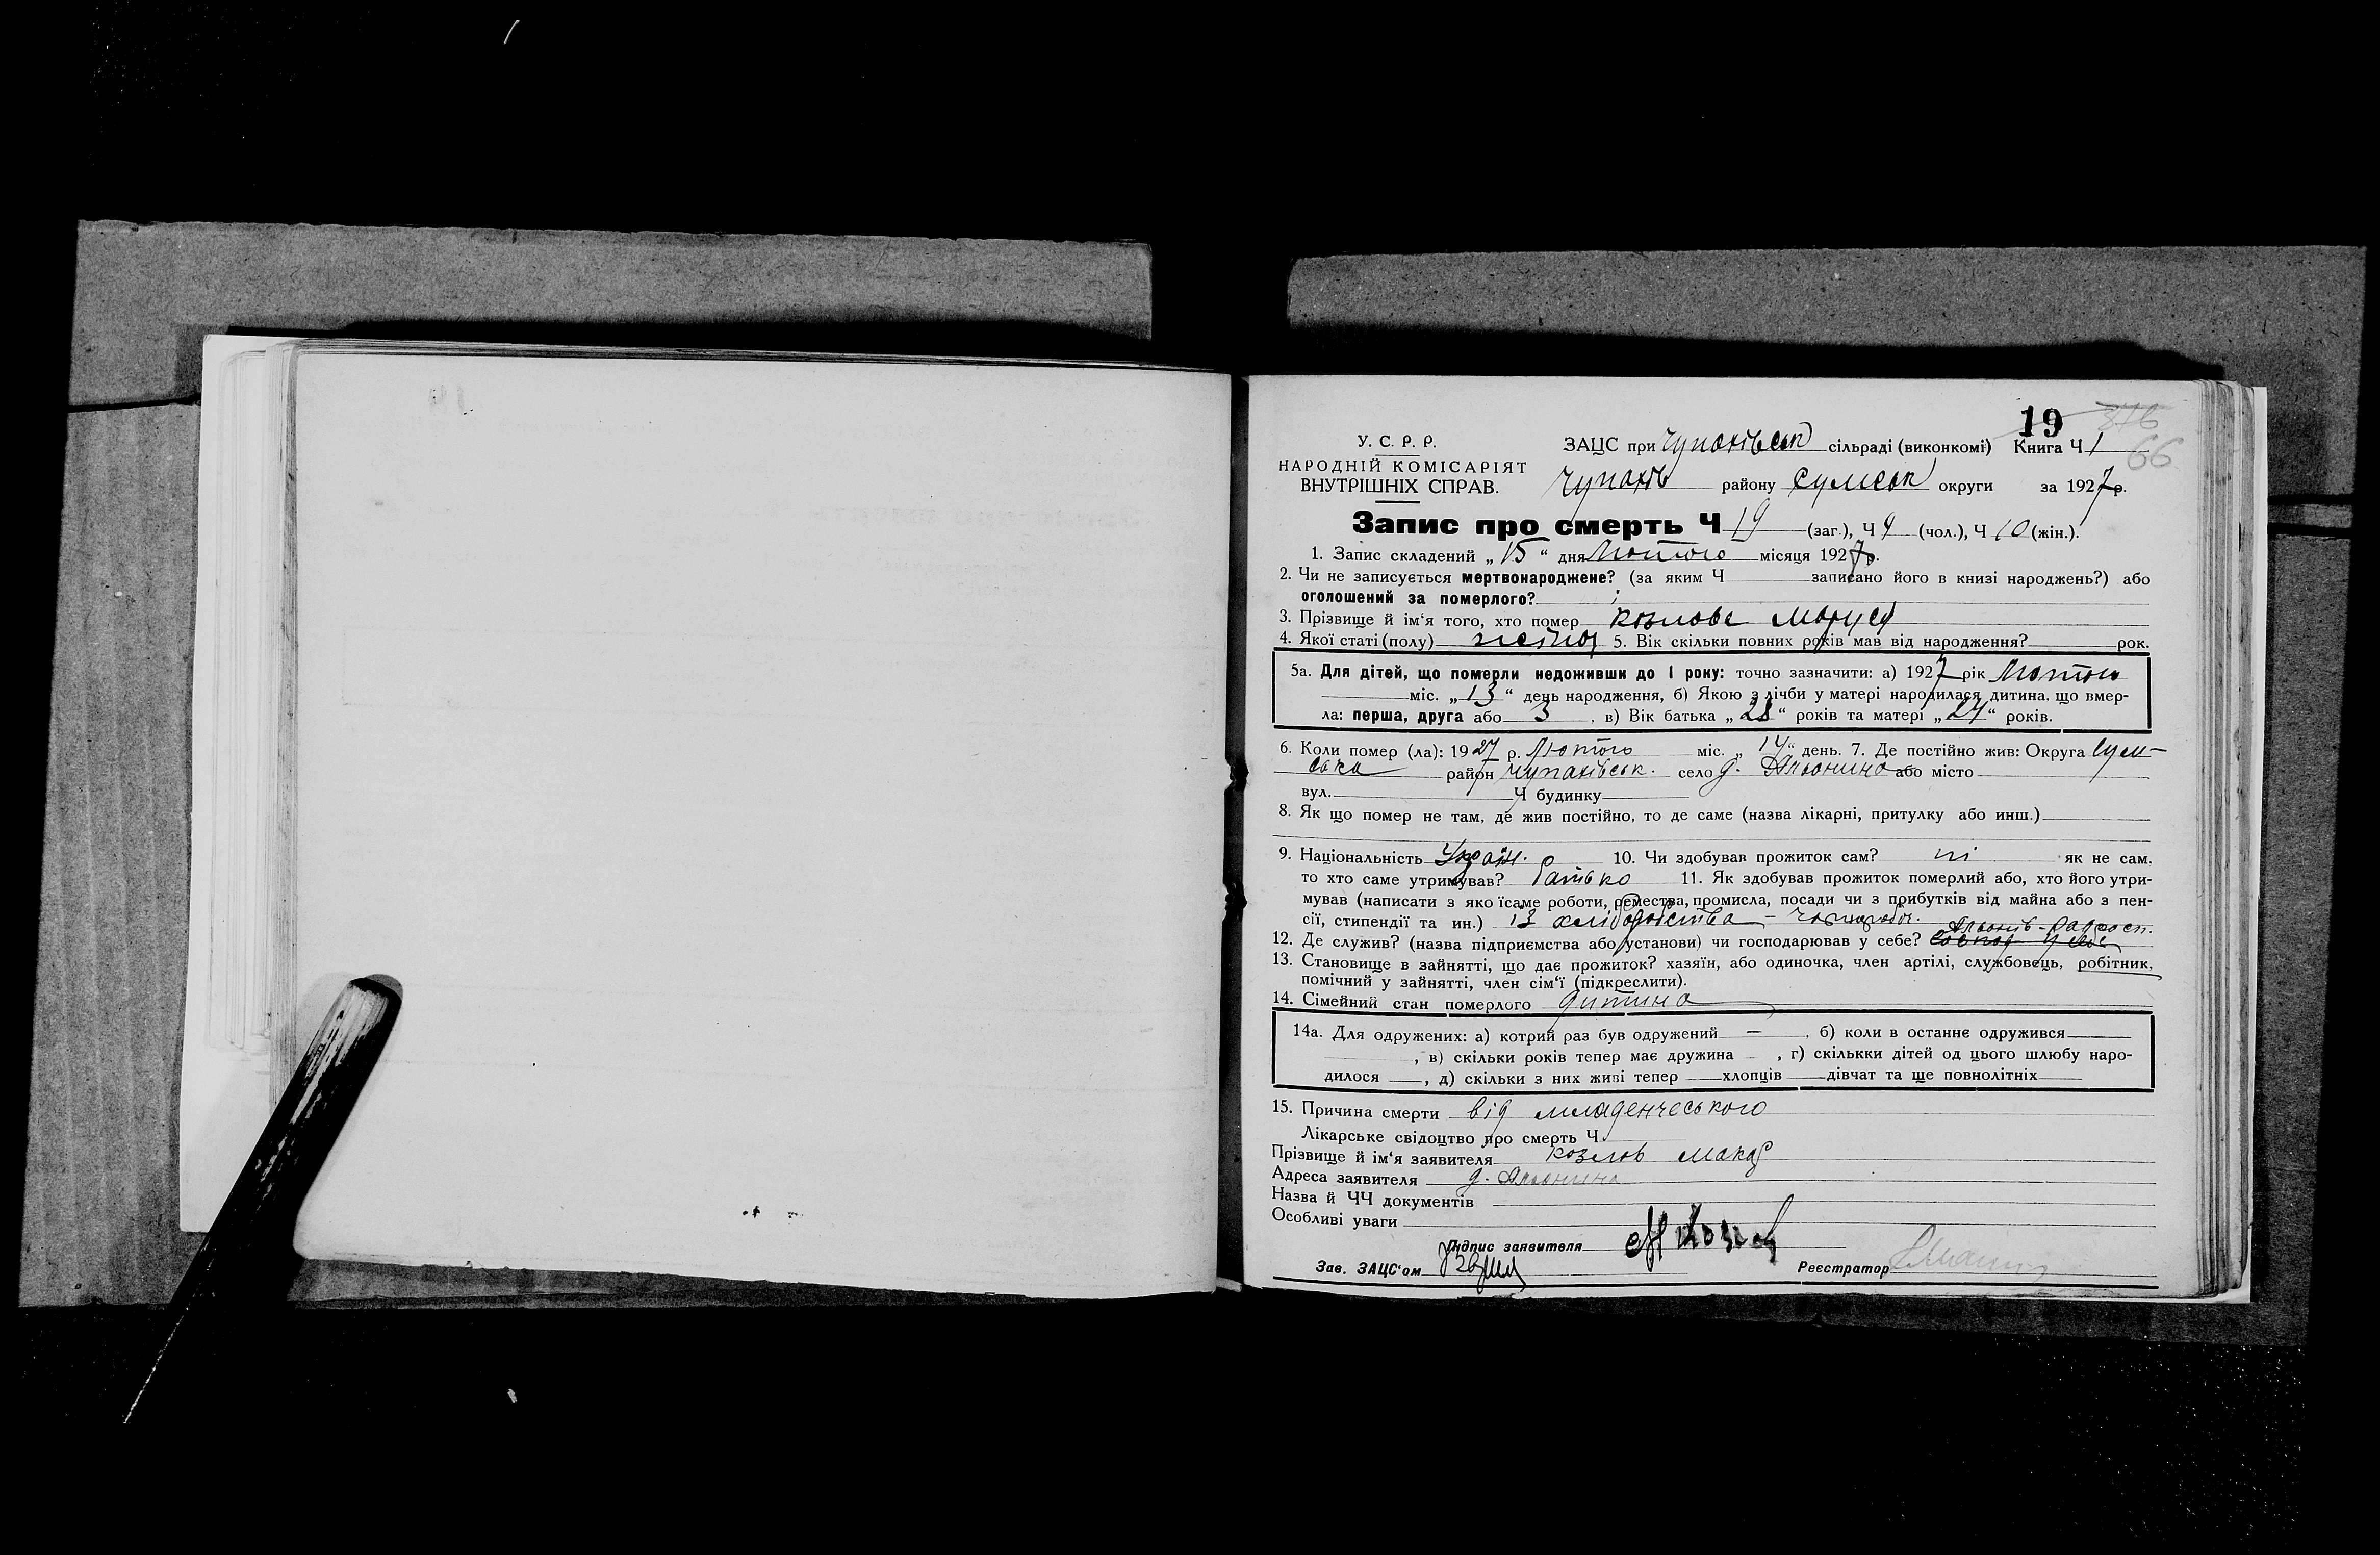 19
376
66
У. С. Р. Р.
НАРОДНІЙ КОМІСАРІЯТ
ВНУТРІШНІХ СПРАВ.
ЗАЦС при Чупахівськ сільраді (виконкомі) Книга Ч 1
Чупахів району Сумськ округи за 1927 р.
Запис про смерть Ч 19 (заг.), Ч 9 (чол.), Ч 10 (жін.).
1. Запис складений „ 15 “ дня Лютого місяця 1927 р.
2. Чи не записується мертвонароджене? (за яким Ч записано його в книзі народжень?) або
оголошений за померлого?
3. Прізвище й ім‘я того, хто помер Козлова Маруся
4. Якої статі (полу) жіноч 5. Вік скільки повних років мав від народження? рок.
5а. Для дітей, що померли недоживши до 1 року: точно зазначити: а) 1927 рік Лютого
міс. „ 13 “ день народження, б) Якою з лічби у матері народилася дитина, що вмер-
ла: перша, друга або 3 , в) Вік батька „ 28 “ років та матері „ 27 “ років.
6. Коли помер (ла): 1927 р. Лютого міс. „ 14 “ день. 7. Де постійно жив: Округа Сум-
ська район Чупахівськ. село д. Альонино або місто
вул. Ч будинку
8. Як що помер не там, де жив постійно, то де саме (назва лікарні, притулку або инш.)
9. Національність Україн. 10. Чи здобував прожиток сам? ні як не сам,
то хто саме утримував? батько 11. Як здобував прожиток померлий або, хто його утри-
мував (написати з яко їсаме роботи, ремества, промисла, посади чи з прибутків від майна або з пен-
сії, стипендії та ин.) із хліборобства – чорнороб.
12. Де служив? (назва підприємства або установи) чи господарював у себе? у себе
13. Становище в зайнятті, що дає прожиток? хазяїн, або одиночка, член артілі, службовець, робітник,
помічний у зайнятті, член сім‘ї (підкреслити).
14. Сімейний стан померлого дитина
14а. Для одружених: а) котрий раз був одружений — , б) коли в останнє одружився
, в) скільки років тепер має дружина – , г) скількки дітей од цього шлюбу наро-
дилося , д) скільки з них живі тепер хлопців дівчат та ще повнолітніх
15. Причина смерти від младенческого
Лікарське свідоцтво про смерть Ч
Прізвище й ім‘я заявителя Козлов Макар
Адреса заявителя д. Альонино
Назва й ЧЧ документів
Особливі уваги
Підпис заявителя М Козлов
Зав. ЗАЦС‘ом
Реєстратор